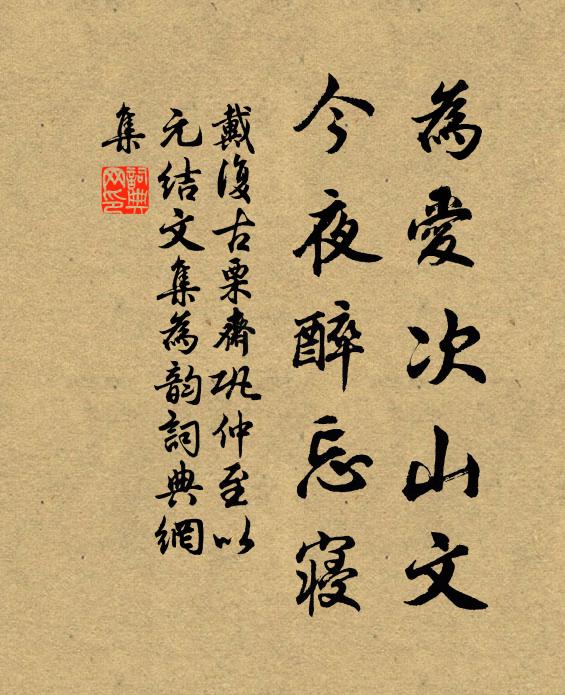 為愛次山文
今夜醉忘寝
戴復古栗齋巩仲至以
元结文集為韵詞典網
集
詞典网印